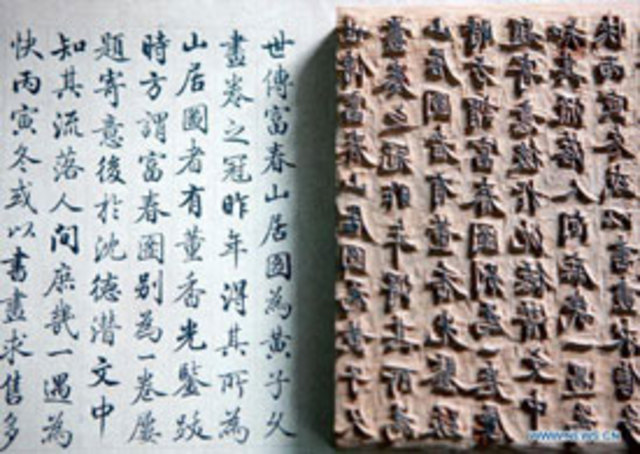 世傳富春山居圖為黃子久
畫卷之冠昨年得其所為
山居圖者有董香光鑒跋
時方謂富春圖別為一卷屢
題寄意後於沈德潛文中
知其流落人間庶幾一遇為
快丙寅冬或以書畫求售多
WWW.NEWS.CN